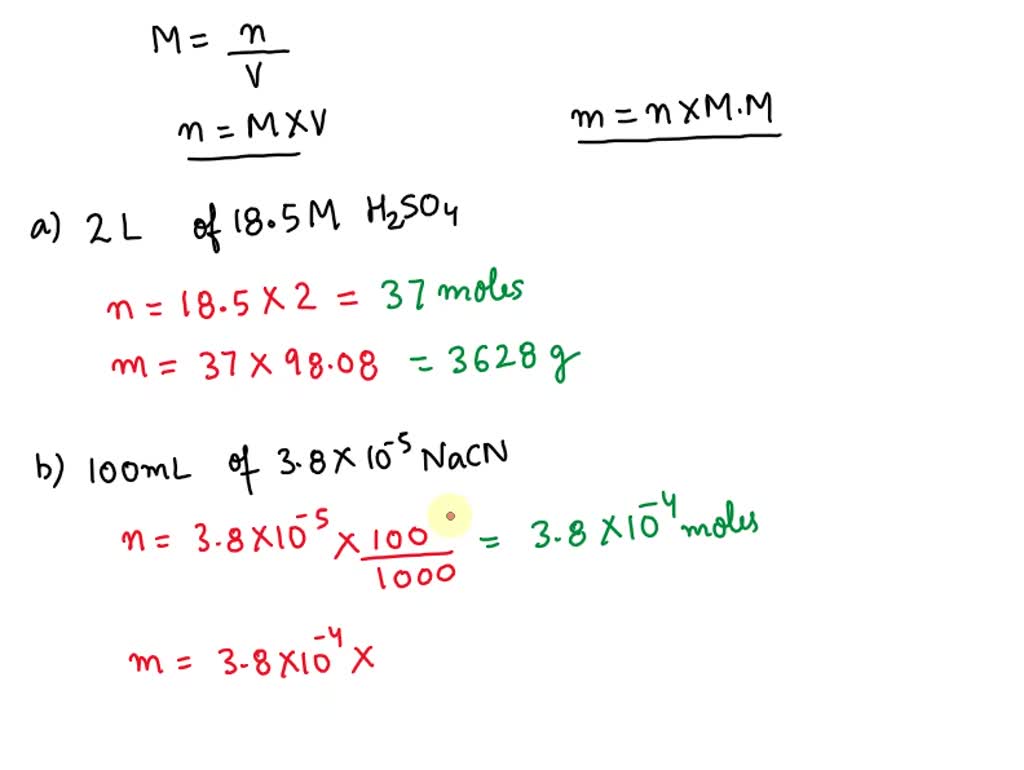 M = n/V
n = M X V
m = n X M.M
a) 2 L of 18.5 M H₂SO₄
n = 18.5 X 2 = 37 moles
m = 37 X 98.08 = 3628 g
b) 100mL of 3.8 X 10⁻⁵ NaCN
n = 3.8 X 10⁻⁵ X 100/1000 = 3.8 X 10⁻⁴ moles
m = 3.8 X 10⁻⁴ X